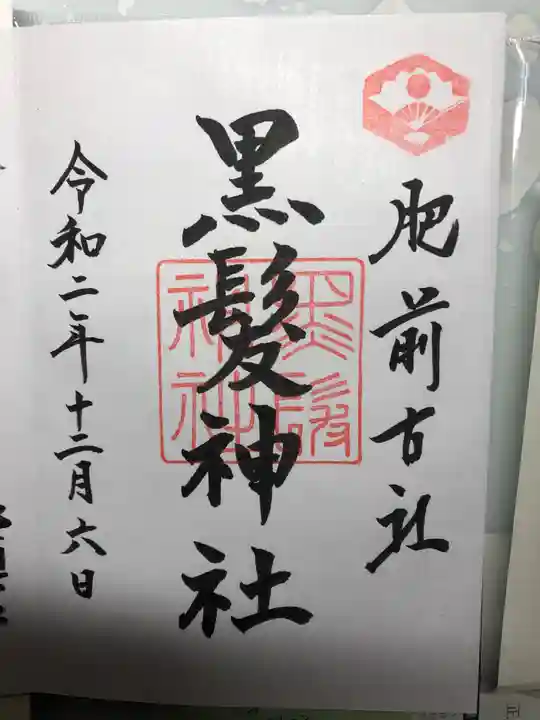 肥前古社
黒髪神社
黒髪神社
令和二年十二月六日